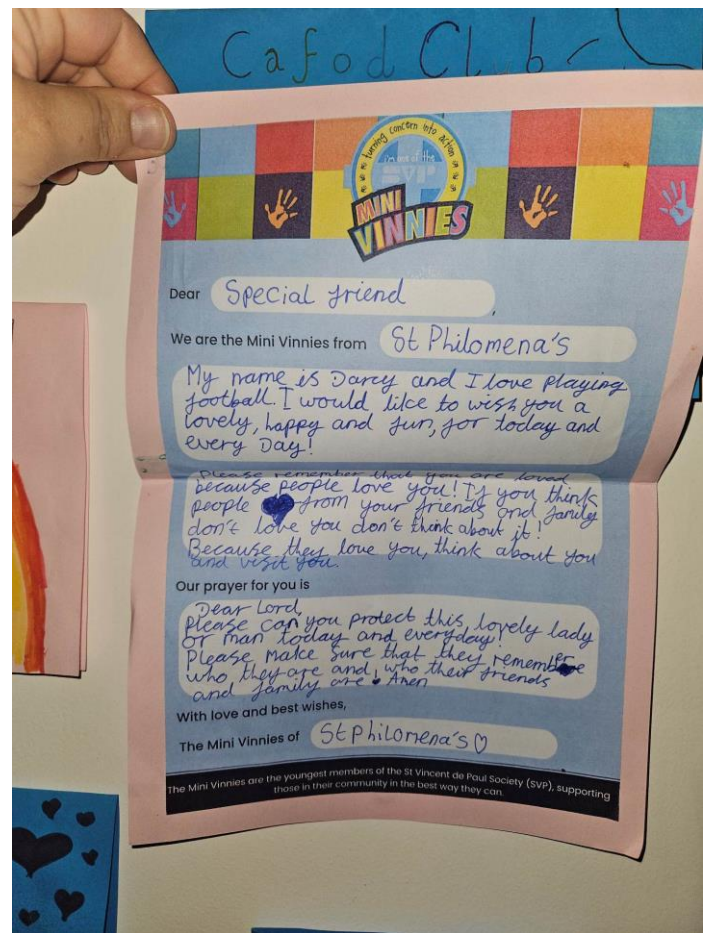 Cafod Club
turning concern into action
i'm one of the
SVP
MINI
VINNIES
Dear Special friend
We are the Mini Vinnies from St Philomena's
My name is Darcy and I love playing
football. I would like to wish you a
lovely, happy and fun, for today and
every Day!
Please remember that you are loved
because people love you! If you think
people from your friends and family
don't love you don't think about it!
Because they love you, think about you
and visit you.
Our prayer for you is
Dear Lord,
Please can you protect this lovely lady
or man today and everyday.
Please make sure that they remember
who they are and, who their friends
and family are Amen
With love and best wishes,
The Mini Vinnies of St Philomena's
The Mini Vinnies are the youngest members of the St Vincent de Paul Society (SVP), supporting
those in their community in the best way they can.